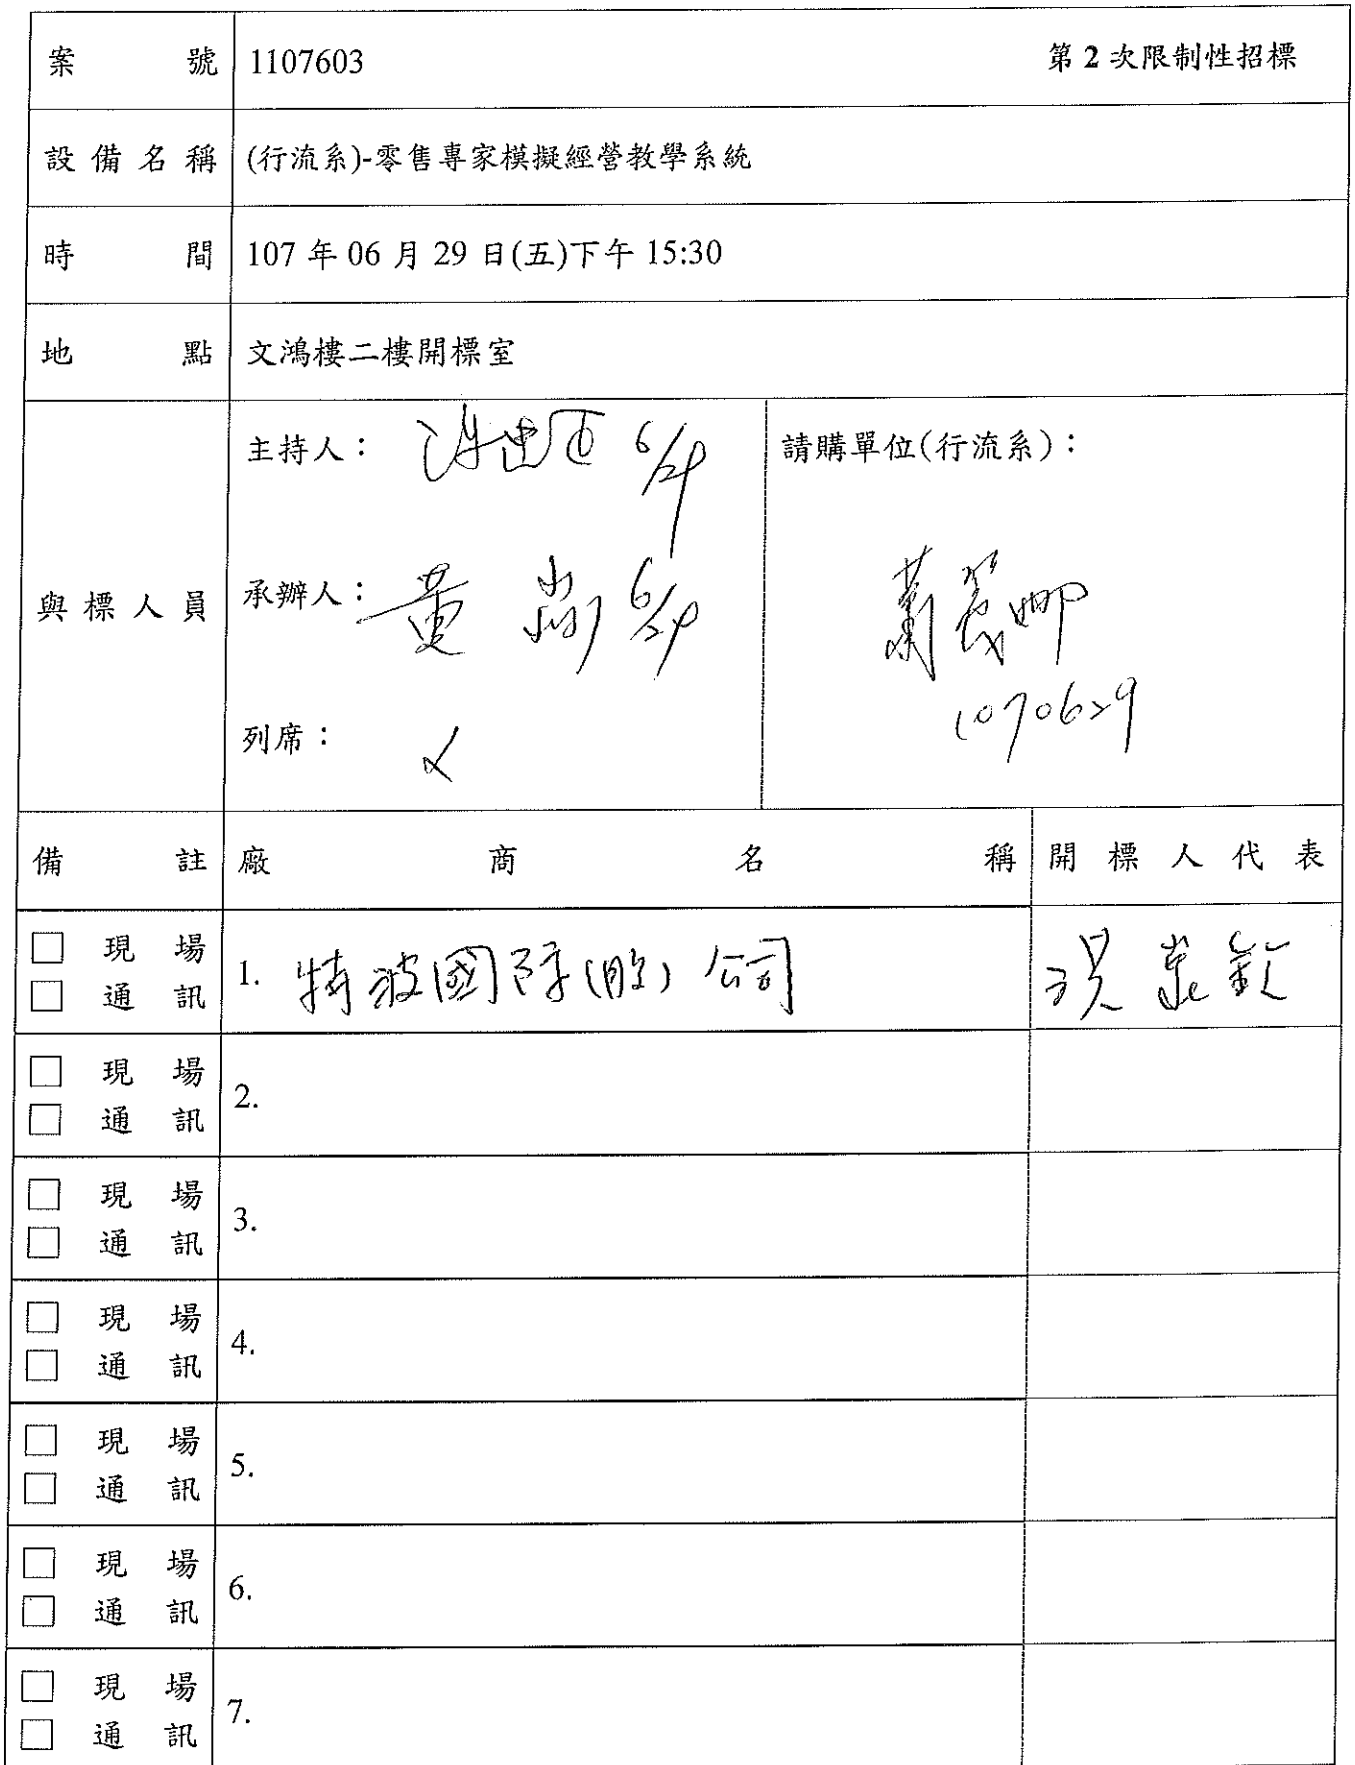 案號 1107603 第 2 次限制性招標
設備名稱 (行流系)-零售專家模擬經營教學系統
時間 107 年 06 月 29 日(五)下午 15:30
地點 文鴻樓二樓開標室
與標人員
主持人： 6/29
承辦人： 黃 6/29
列席：
請購單位(行流系)：
1070629
備註 廠商名稱 開標人代表
□ 現場
□ 通訊
1. 特波國際(股)公司
□ 現場
□ 通訊
2.
□ 現場
□ 通訊
3.
□ 現場
□ 通訊
4.
□ 現場
□ 通訊
5.
□ 現場
□ 通訊
6.
□ 現場
□ 通訊
7.